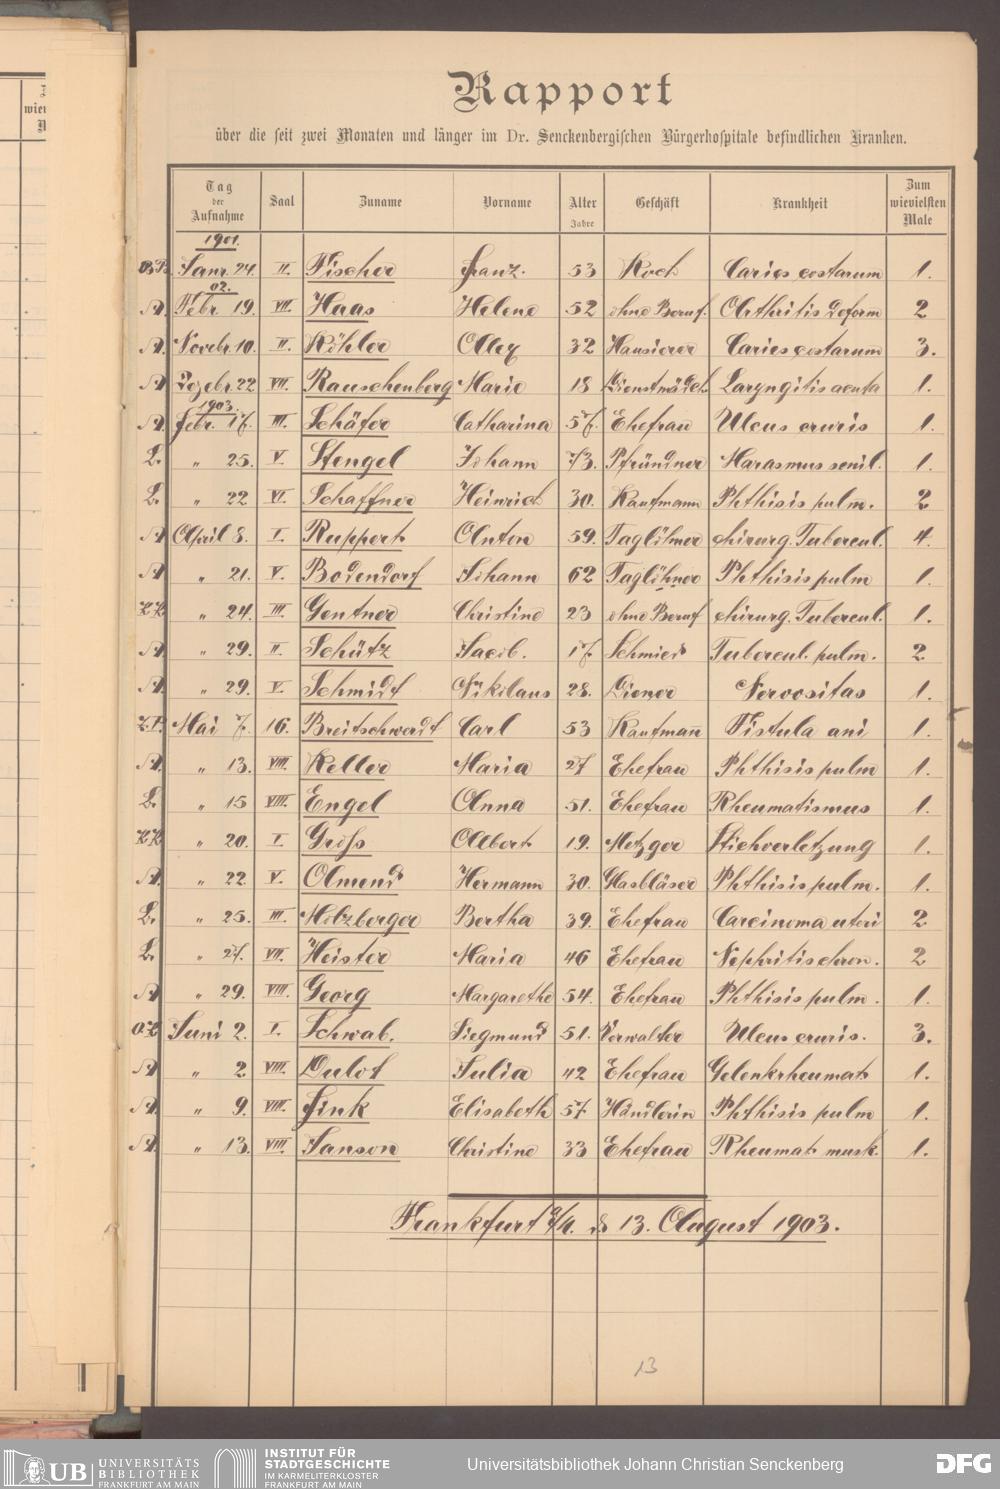 Rapport
über die seit zwei Monaten und länger im Dr. Senckenbergischen Bürgerhospitale befindlichen Kranken.
Tag der Aufnahme Saal Zuname Vorname Alter Jahre Geschäft Krankheit Zum wievielsten Male
1901.
Janr. 24. II. Fischer Franz. 53 Koch Caries costarum 1.
02.
A. Febr. 19. VII. Haas Helene 52 ohne Beruf. Arthritis deform 2
A. Novebr. 10. II. Köhler Alex 32 Hausierer Caries costarum 3.
A Dezebr. 22 VII. Rauschenberg Marie 18 Dienstmädch. Laryngitis acuta 1.
1903.
A. Febr. 17. III. Schäfer Catharina 57. Ehefrau Ulcus cruris 1.
L. " 25. V. Stengel Johann 73. Pfründner Marasmus senil. 1.
L. " 22 VI. Schaffner Heinrich 30. Kaufmann Phthisis pulm. 2
A April 8. I. Ruppert Anton 59. Taglöhner chirurg. Tubercul. 4.
A " 21. V. Bodendorf Johann 62 Taglöhner Phthisis pulm 1.
KK " 24. III. Gentner Christine 23 ohne Beruf chirurg. Tubercul. 1.
A. " 29. II. Schütz Jacob. 17. Schmied Tubercul. pulm. 2
A. " 29. V. Schmidt Nikolaus 28. Diener Nervositas 1.
Z.P. Mai 7. 16. Breitschwerdt Carl 53 Kaufmañ Fistula ani 1.
A. " 13. VIII. Keller Maria 27 Ehefrau Phthisis pulm 1.
L. " 15 VIII. Engel Anna 51. Ehefrau Rheumatismus 1.
KK " 20. I. Groß Albert 19. Metzger Stichverletzung 1.
A. " 22. V. Almend Hermann 30. Glasbläser Phthisis pulm. 1.
L. " 25. III. Holzberger Bertha 39. Ehefrau Carcinoma uteri 2
L. " 27. VII. Heister Maria 46 Ehefrau Nephritis chron. 2
A " 29. VIII. Georg Margarethe 54. Ehefrau Phthisis pulm. 1.
Juni 2. I. Schwab. Siegmund 51. Verwalter Ulcus cruris. 3.
A " 2 VIII. Dulot Julia 42 Ehefrau Gelenkrheumat. 1.
A. " 9. VIII. Fink Elisabeth 57. Händlerin Phthisis pulm 1.
A. " 13. VIII. Janson Christine 33 Ehefrau Rheumat. musk. 1.
Frankfurt a/M. d 13. August 1903.
13
UB UNIVERSITÄTS BIBLIOTHEK FRANKFURT AM MAIN
INSTITUT FÜR STADTGESCHICHTE IM KARMELITERKLOSTER FRANKFURT AM MAIN
Universitätsbibliothek Johann Christian Senckenberg
DFG